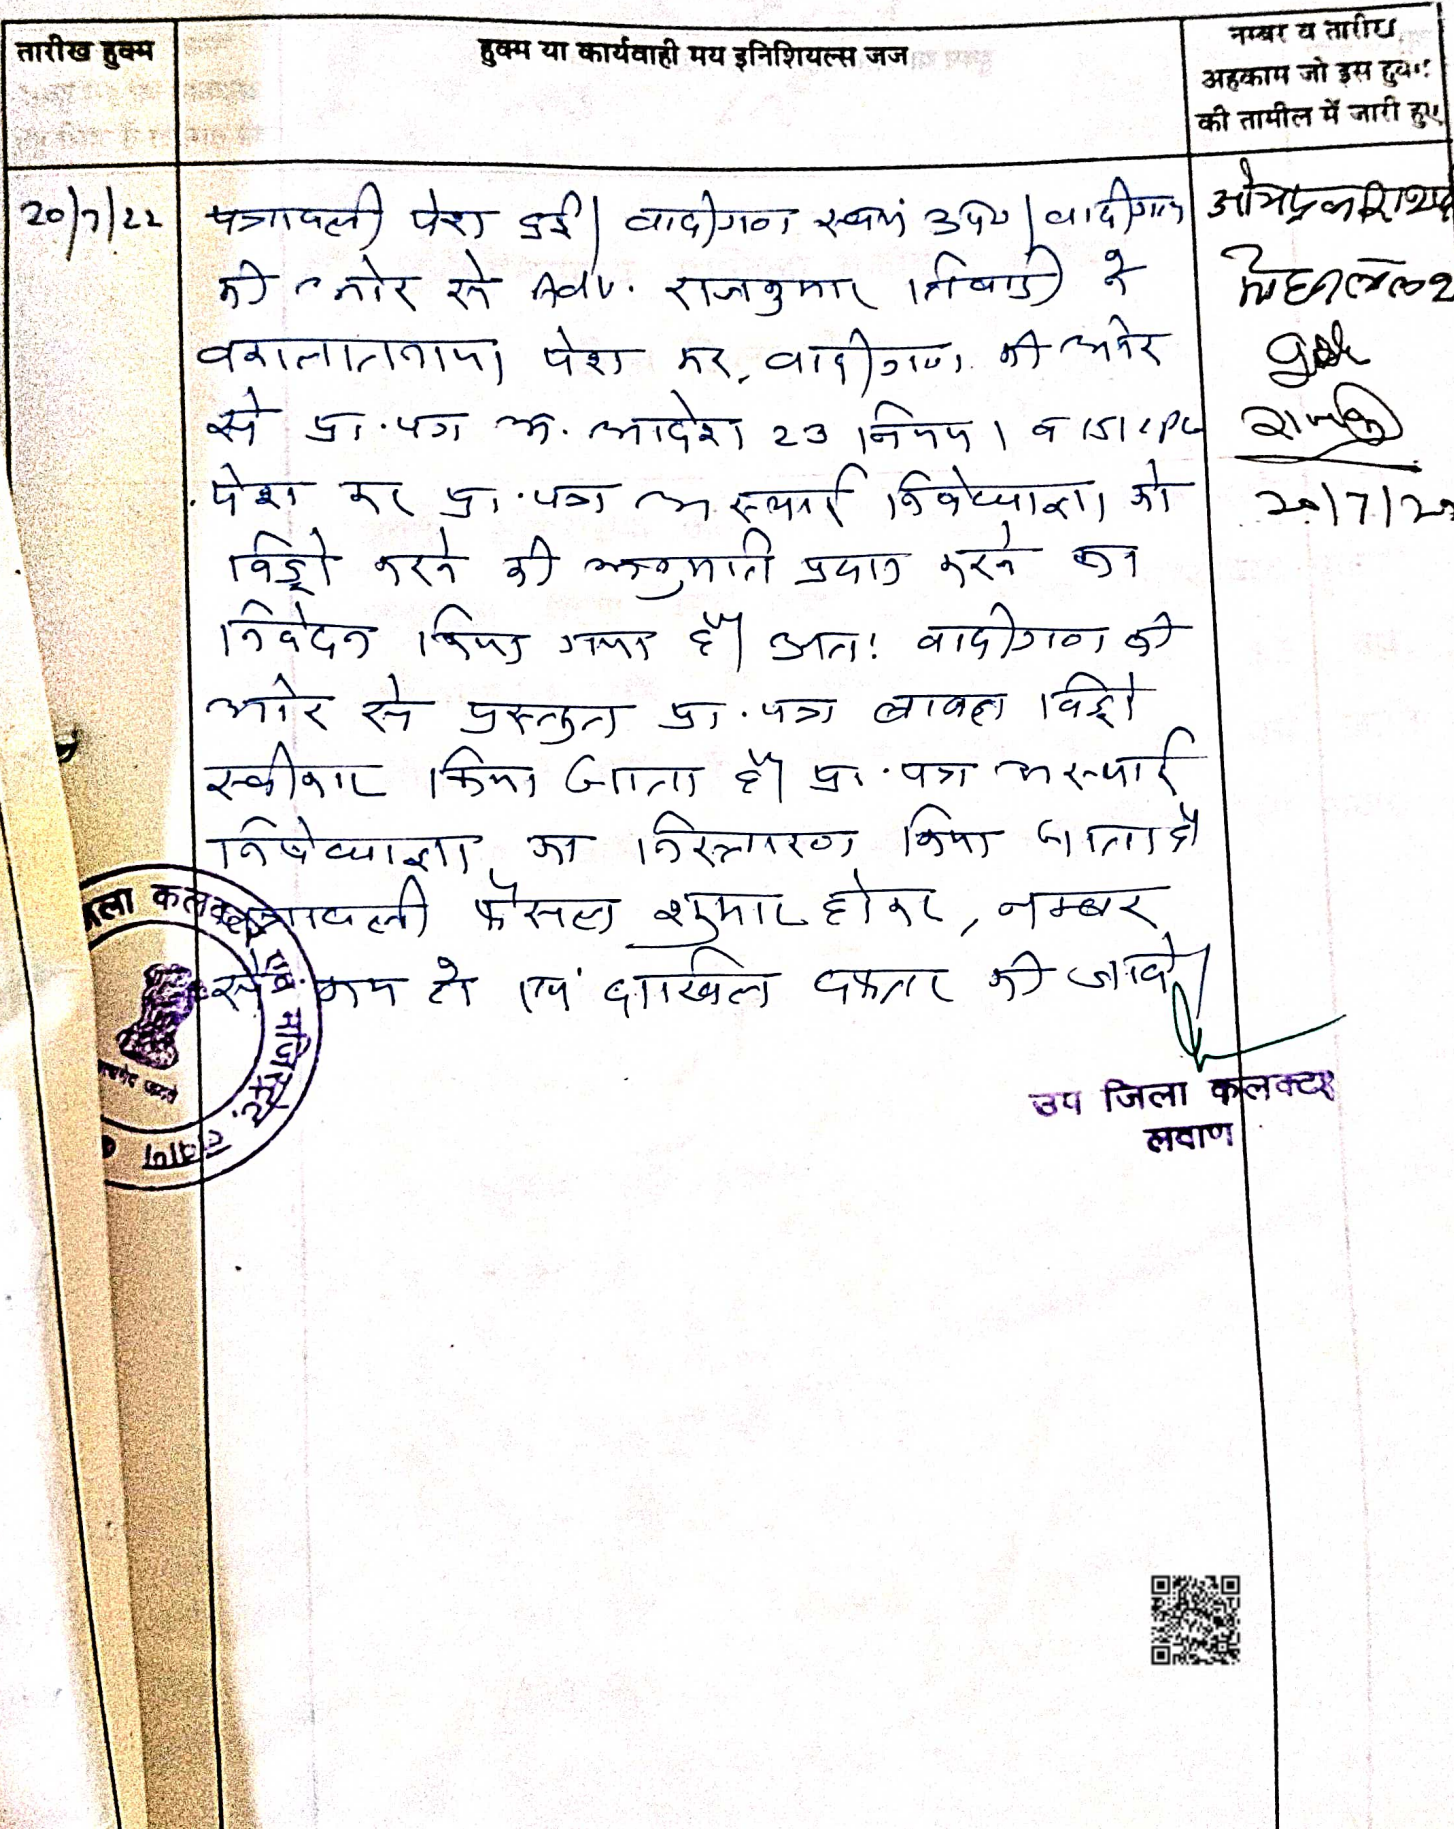 तारीख हुक्म
हुक्म या कार्यवाही मय इनिशियल्स जज
नम्बर व तारीख
अहकाम जो इस हुक्म
की तामील में जारी हुए
20/7/22
पत्रावली पेश हुई। वादीगण स्वयं उप०। वादीगण
की ओर से Adv. राजकुमार तिवाडी ने
वकालातनामा पेश कर, वादीगण की ओर
से प्रा.पत्र अ. आदेश 23 नियम 1 व 151 CPC
पेश कर प्रा.पत्र अस्थाई निषेधाज्ञा को
विड्रो करने की अनुमति प्रदान करने का
निवेदन किया गया है। अतः वादीगण की
ओर से प्रस्तुत प्रा.पत्र बाबत विड्रो
स्वीकार किया जाता है। प्रा.पत्र अस्थाई
निषेधाज्ञा का निस्तारण किया जाता है
पत्रावली फैसल शुमार होकर, नम्बर
से कम हो एवं दाखिल दफ्तर की जावे।
ओमप्रकाश
20/7/22
उप जिला कलक्टर
लवाण
जिला कलक्टर एवं मजिस्ट्रेट लवाण
सत्यमेव जयते